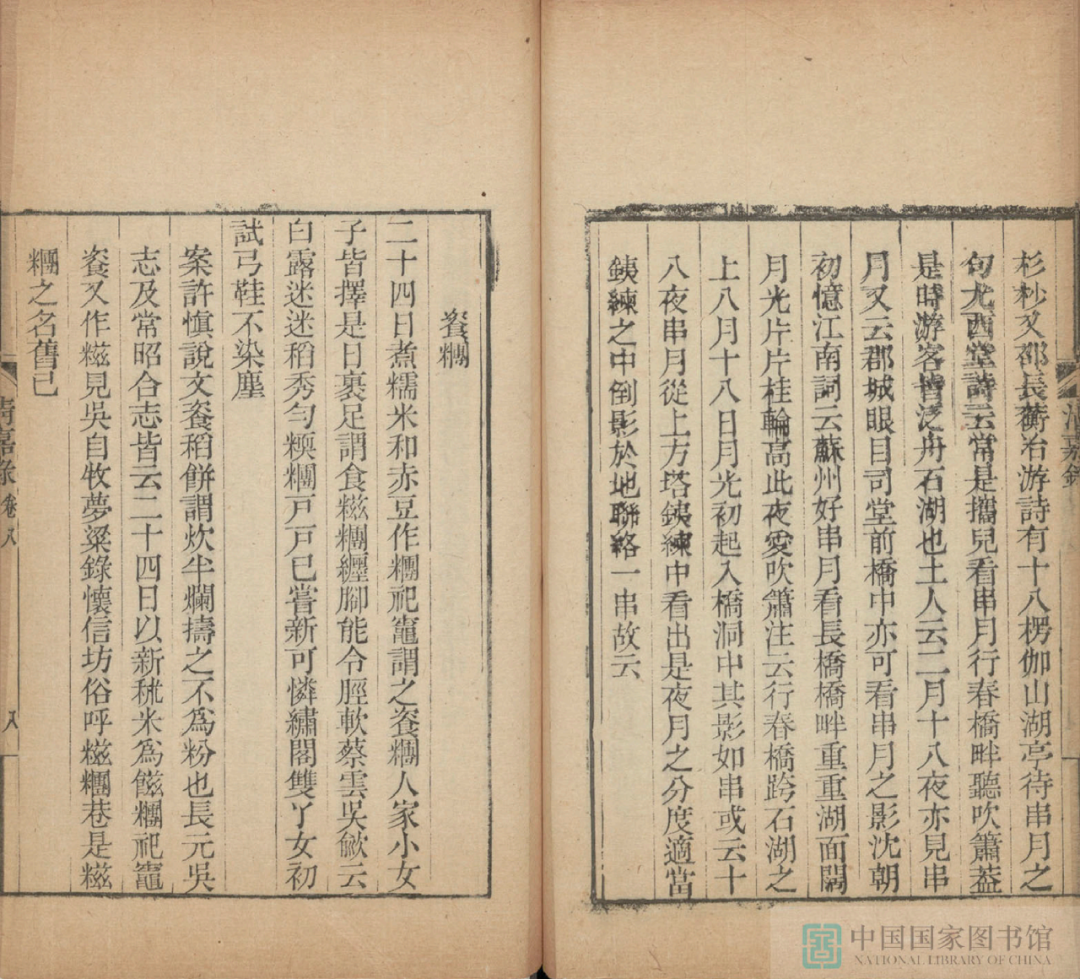 杉杪又邵長蘅冶游詩有十八楞伽山湖亭待串月之
句尤西堂詩云常是攜兒看串月行春橋畔聽吹簫蓋
是時游客皆泛舟石湖也土人云二月十八夜亦見串
月又云郡城眼目司堂前橋中亦可看串月之影沈朝
初憶江南詞云蘇州好串月看長橋橋畔重重湖面闊
月光片片桂輪高此夜愛吹簫注云行春橋跨石湖之
上八月十八日月光初起入橋洞中其影如串或云十
八夜串月從上方塔鐵練中看出是夜月之分度適當
鐵練之中倒影於地聯絡一串故云
清嘉錄
餈糰
二十四日煮糯米和赤豆作糰祀竈謂之餈糰人家小女
子皆擇是日裹足謂食糍糰纏腳能令脛軟蔡雲吳歈云
白露迷迷稻秀勻糯糰戶戶已嘗新可憐繡閣雙丫女初
試弓鞋不染塵
案許愼說文餈稻餅謂炊半爛擣之不為粉也長元吳
志及常昭合志皆云二十四日以新秫米為餈糰祀竈
餈又作糍見吳自牧夢粱錄懷信坊俗呼糍糰巷是糍
糰之名舊已
清嘉錄 卷八
八
中国国家图书馆
NATIONAL LIBRARY OF CHINA